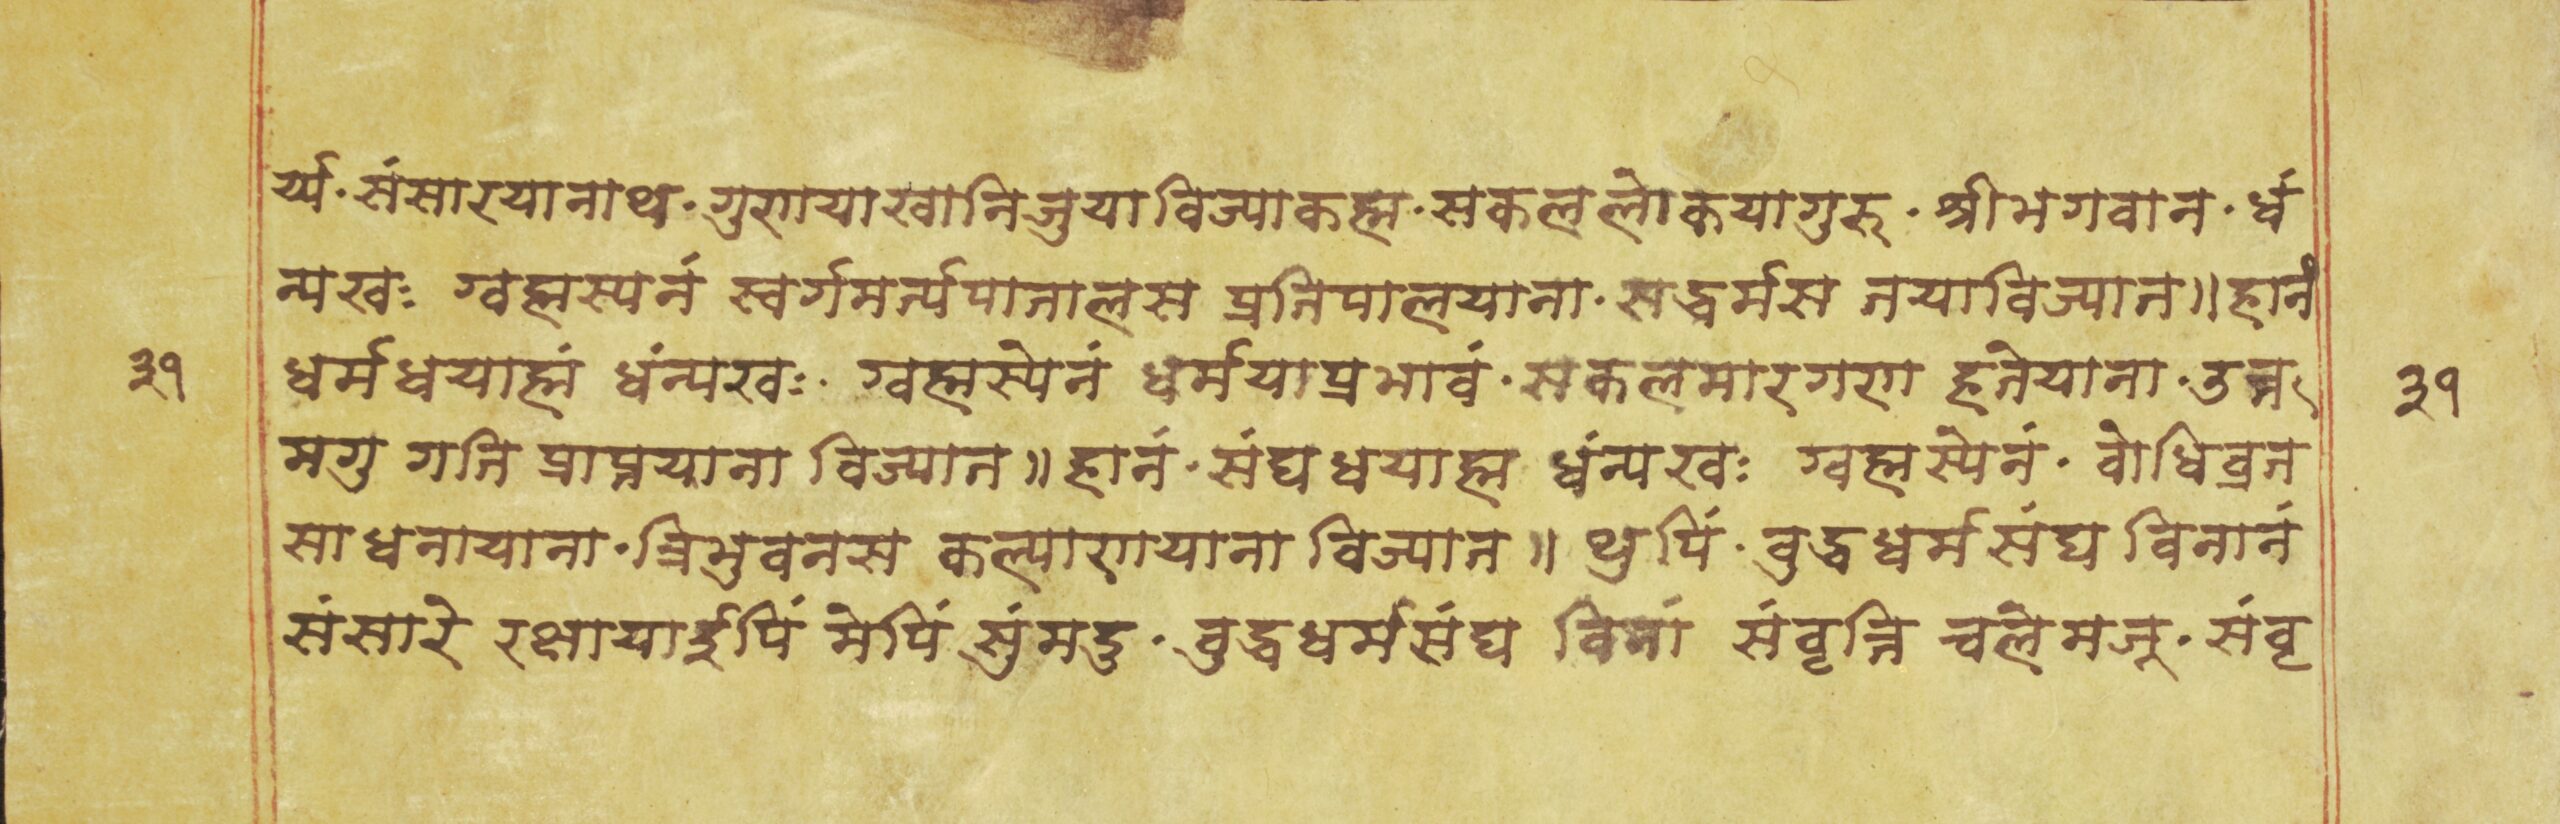 र्य्य· संसारयानाथ· गुणयाखानिजुयाविज्याकह्म· सकललोकयागुरु· श्रीभगवान· धं
न्यखः ग्वह्मस्यनं स्वर्गमर्त्यपातालस प्रतिपालयाना· सद्धर्मस तयाविज्यात॥ हानं
३१ धर्मधयाह्मं धंन्यखः· ग्वह्मस्येनं धर्मयाप्रभावं· सकलमारगण हतेयाना· उत्त
मगु गति प्राप्तयाना विज्यात॥ हानं· संघधयाह्म धंन्यखः ग्वह्मस्येनं· वोधिव्रत
साधनायाना· त्रिभुवनस कल्याणयाना विज्यात॥ थुपिं· वुद्धधर्मसंघ विनानं
संसारे रक्षायाईपिं मेपिं सुंमदु· वुद्धधर्मसंघ विनां संवृत्ति चलेमजू· संवृ
३१